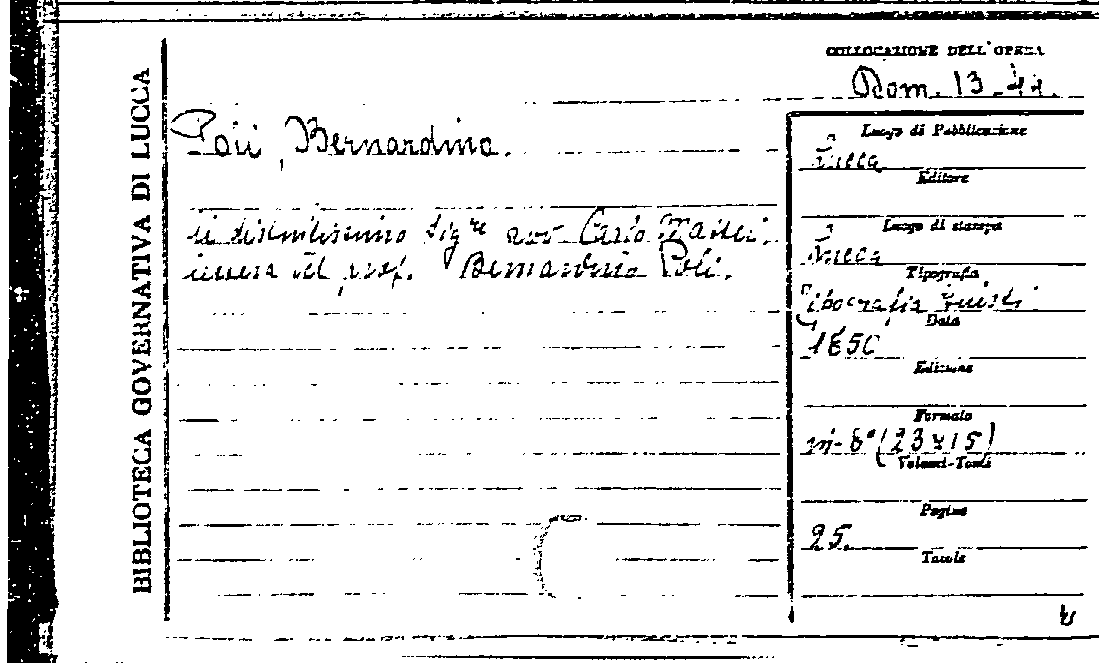 BIBLIOTECA GOVERNATIVA DI LUCCA
COLLOCAZIONE DELL'OPERA
Dom. 13.44.
Poli, Bernardino.
Al distintissimo Sigre avv. Carlo Massei.
lettera del prof. Bernardino Poli.
Luogo di Pubblicazione
Lucca
Editore
Luogo di stampa
Lucca
Tipografia
Tipografia Giusti
Data
1850
Edizione
Formato
in-8° (23x15)
Volumi-Tomi
Pagine
25.
Tavole